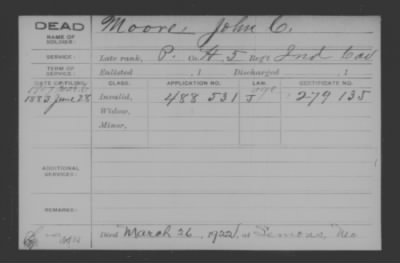 DEAD
NAME OF SOLDIER:
Moore, John C.
SERVICE:
Late rank, P. Co. H. 5 Reg't Ind Cav
TERM OF SERVICE:
Enlisted , 1 Discharged , 1
DATE OF FILING. CLASS. APPLICATION NO. LAW. CERTIFICATE NO.
1883 June 28 Invalid, 488 531 J 279 135
Widow,
Minor,
ADDITIONAL SERVICES:
REMARKS:
Died March 26, 1922, at Mo